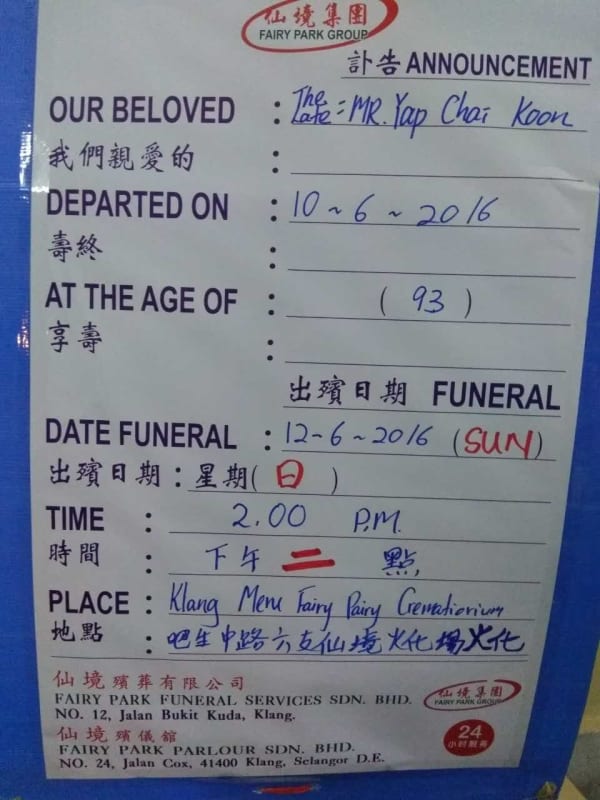 仙境集團
FAIRY PARK GROUP
訃告 ANNOUNCEMENT
OUR BELOVED : The Late = MR. Yap Chai Koon
我們親愛的 :
DEPARTED ON : 10 ~ 6 ~ 2016
壽終 :
AT THE AGE OF : ( 93 )
享壽 :
出殯日期 FUNERAL
DATE FUNERAL : 12-6~2016 (SUN)
出殯日期 : 星期( 日 )
TIME : 2.00 P.M.
時間 : 下午 二 點
PLACE : Klang Meru Fairy Pairy Crematiorium
地點 : 吧生中路六支仙境火化場火化
仙境殯葬有限公司
FAIRY PARK FUNERAL SERVICES SDN. BHD.
NO. 12, Jalan Bukit Kuda, Klang.
仙境集團
FAIRY PARK GROUP
仙境殯儀館
FAIRY PARK PARLOUR SDN. BHD.
NO. 24, Jalan Cox, 41400 Klang, Selangor D.E.
24
小时服务